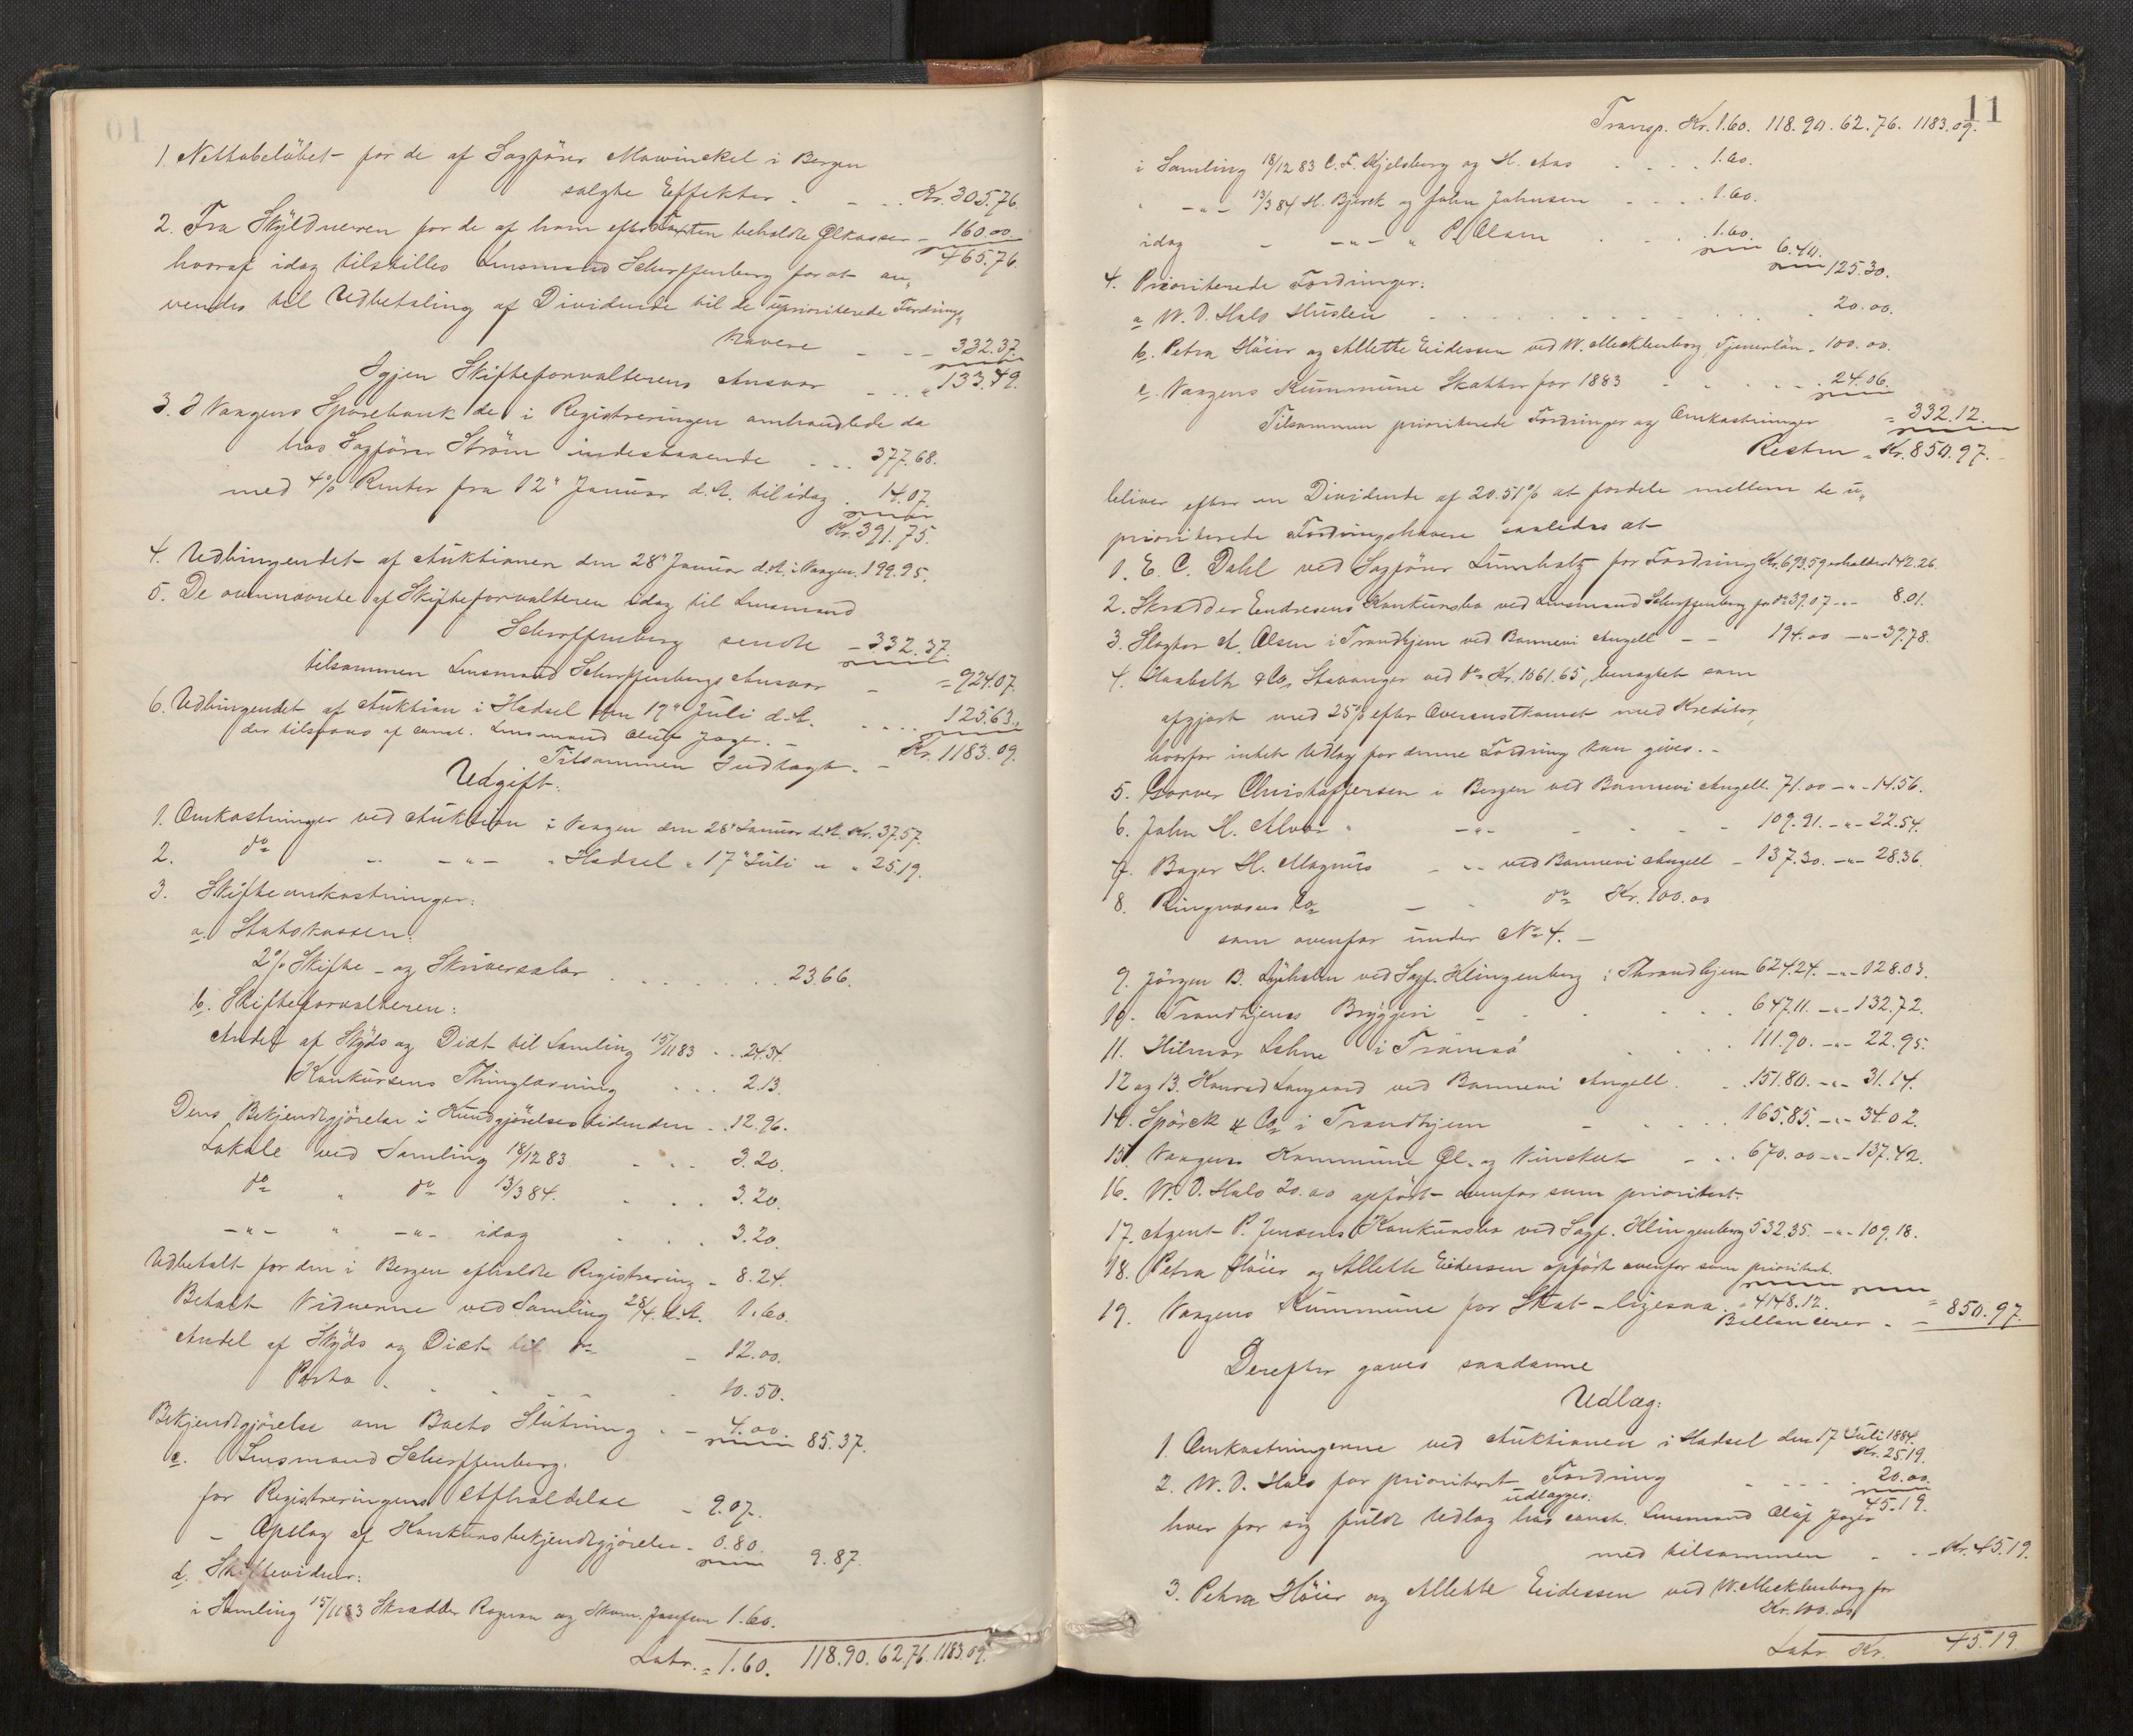 1. Nettobeløbet for de af Sagfører Mowinckel i Bergen
solgte Effekter - - . . Kr. 305.76.
2. Fra Skyldneren for de af ham efter Taxten beholdte Ølkasser - 160.00.
465.76.
hvoraf idag tilstilles Lensmand Scherffenberg for at an„
vendes til Udbetaling af Dividende til de uprioriterede Fordrings„
havere - - - 332.37.
Igjen Skifteforvalterens Ansvar . . . „ 133.49.
3. I Vaagens Sparebank de i Registreringen omhandlede da
hos Sagfører Strøm indestaaende . . . 377.68.
med 4% Renter fra 12te Januar d.A. til idag . 14.07.
Kr. 391.75.
4. Udbringendet af Auktionen den 28de Januar d.A. i Vaagen. 199.95.
5. De ovennævnte af Skifteforvalteren idag til Lensmand
Scherffenberg sendte - 332.37.
tilsammen Lensmand Scherffenbergs Ansvar - = 924.07.
6. Udbringendet af Auktion i Hadsel den 17de Juli d.A. . . . . 125.63.
der tilsvares af const. Lensmand Oluf Jager. -
Tilsammen Indtægt. - Kr. 1183.09.
Udgift:
1. Omkostninger ved Auktion i Vaagen den 28de Januar d.A. Kr. 37.57.
2. do „ - „ - „ Hadsel „ 17de Juli „ „ 25.19.
3. Skifteomkostninger:
a. Statskassen:
2% Skifte- og Skriversalær . . . . . . . 23.66.
b. Skifteforvalteren:
Andel af Skyds og Diæt til Samling 15/11 83 . . 24.34.
Konkursens Thinglæsning . . . 2.13.
Dens Bekjendtgjørelse i Kundgjørelsestidenden . . 12.96.
Lokale ved Samling 18/12 83 . . . 3.20.
do „ do 13/3 84. . . . 3.20.
-„- „ -„- idag . . . 3.20.
Udbetalt for den i Bergen afholdte Registrering - 8.24.
Betalt Vidnerne ved Samling 28/4 d.A. 1.60.
Andel af Skyds og Diæt til do - 12.00.
Porto . . - - - . 10.50.
Bekjendtgjørelse om Boets Slutning . - 4.00. 85.37.
c. Lensmand Scherffenberg:
for Registreringens Afholdelse - 9.07.
- Opslag af Konkursbekjendtgjørelse - 0.80. 9.87.
d. Skiftevidner:
i Samling 15/11 83 Skrædder Rognan og Skom. Josefsen 1.60.
Latr. = 1.60. 118.90. 62.76. 1183.09.
11
Transp. Kr. 1.60. 118.90. 62.76. 1183.09.
i Samling 18/12 83 C. F. Kjelsberg og H. Aas . . . . 1.60.
„ -„- 13/3 84 H. Bjørck og John Johnsen . . . . 1.60.
idag - -„- „ P. Olsen . . . 1.60. 6.40.
125.30.
4. Prioriterede Fordringer:
a. W. D. Hals Husleie . . . . . . . 20.00.
b. Petra Høier og Allette Eidessen ved W. Mecklenborg, Tjenerløn - 100.00.
c. Vaagens Kommune Skatter for 1883 . . . . . 24.06.
Tilsammen prioriterede Fordringer og Omkostninger = 332.12.
Resten = Kr. 850.97.
bliver efter en Dividende af 20.51% at fordele mellem de u„
prioriterede Fordringshavere saaledes at
1. E. C. Dahl ved Sagfører Lumholtz for Fordring Kr. 693.59 erholder 142.26.
2. Skrædder Endresens Konkursbo ved Lensmand Scherffenberg for do 39.07 -„- 8.01.
3. Slagter A. Olsen i Trondhjem ved Bonnevi Angell - - 194.00 -„- 39.78.
4. Haabeth & Co, Stavanger ved do Kr. 1061.65, benægtet som
afgjort med 25% efter Overenstkomst med Kreditor,
hvorfor intet Udlæg for denne Fordring kan gives. -
5. Garver Christoffersen i Bergen ved Bonnevi Angell. 71.00 -„- 14.56.
6. John H. Alver „ -„- - - - - 109.91. -„- 22.54.
7. Bager H. Magnus - „ ved Bonnevi Angell - 137.30. -„- 28.36.
8. Ringnæses Co - - do Kr. 100.00
som ovenfor under No 4. -
9. Jørgen B. Lysholm ved Sagf. Klingenberg i Throndhjem 624.24. -„- 128.03.
10. Trondhjems Bryggeri - . . . . 647.11. -„- 132.72.
11. Hilmar Lehne i Tromsø . . . 111.90. -„- 22.95.
12 og 13. Konrad Langaard ved Bonnevi Angell . . 151.80. -„- 31.14.
14. Spørck & Co i Trondhjem - . . . 165.85. -„- 34.02.
15. Vaagens Kommune Øl- og Vinskat - . . 670.00 -„- 137.42.
16. W. D. Hals 20.00 opført ovenfor som prioritert.
17. Agent P. Jensens Konkursbo ved Sagf. Klingenberg 532.35. -„- 109.18.
18. Petra Høier og Allette Eidessen opført ovenfor som prioritert.
19. Vaagens Kommune for Skat - ligesaa. „ 4148.12. = 850.97.
Ballancerer. -
Derefter gaves saadanne
Udlæg:
1. Omkostningerne ved Auktionen i Hadsel den 17 Juli 1884.
Kr. 25.19.
2. W. D. Hals for prioritert Fordring . . . . 20.00.
45.19.
udlægges:
hver for sig fuldt Udlæg hos const. Lensmand Oluf Jager
med tilsammen - . - Kr. 45.19.
3. Petra Høier og Allette Eidessen ved W. Mecklenborg for
Kr. 100.00
Latr. Kr. 45.19.